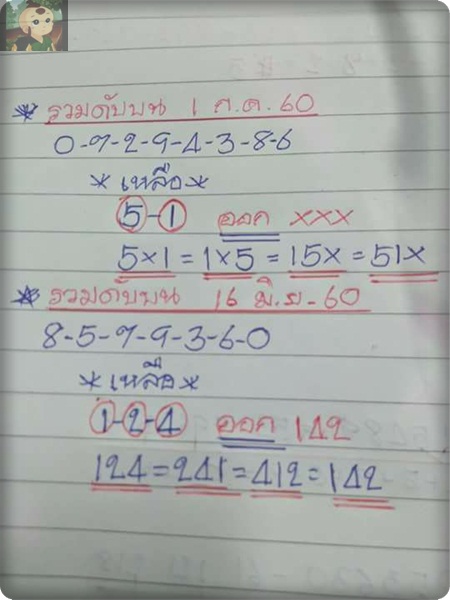 * รวมดับบน 1 ก.ค. 60
0-7-2-9-4-3-8-6
* เหลือ *
5-1 ออก xxx
5x1 = 1x5 = 15x = 51x
* รวมดับบน 16 มิ.ย-60
8-5-7-9-3-6-0
* เหลือ *
1-2-4 ออก 142
124 = 241 = 412 = 142